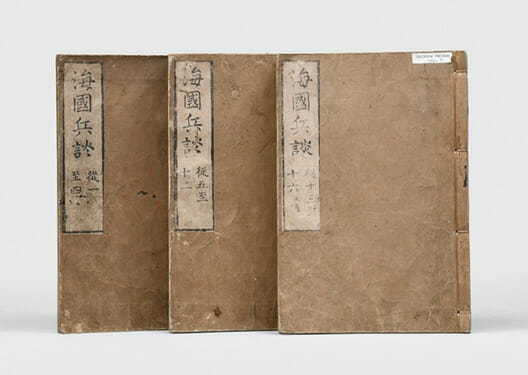 海國兵談
從一
至四
海國兵談
從五至
十二
海國兵談
從十三
十六
Kaikoku Heidan
vol.